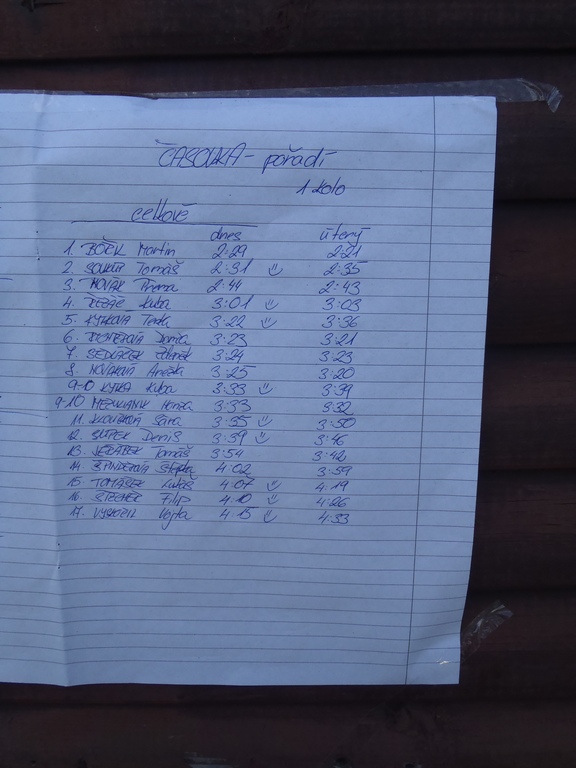 ČASOVKA - pořadí
1 kolo
celkově
dnes úterý
1. BÓČEK Martin 2:29 2:21
2. SOUKUP Tomáš 2:31 2:35
3. NOVÁK 2:44 2:43
4. Kuba 3:01 3:03
5. KYTKOVÁ Terka 3:22 3:36
6. 3:23 3:21
7. SEDLÁČEK Zdeněk 3:24 3:23
8. NOVÁKOVÁ Anežka 3:25 3:20
9-10 KYTKA Kuba 3:33 3:39
9-10 Honza 3:33 3:32
11. Sára 3:35 3:50
12. Denis 3:39 3:46
13. JEŘÁBEK Tomáš 3:54 3:42
14. Štěpka 4:02 3:59
15. TOMÁŠEK Lukáš 4:07 4:19
16. Filip 4:10 4:26
17. Vojta 4:15 4:33